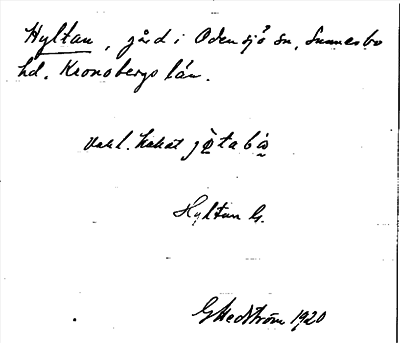 Hyltan, gård i Odensjö sn, Sunnerbo
hd. Kronobergs län.
kallat
Hyltan G.
GHedström 1920